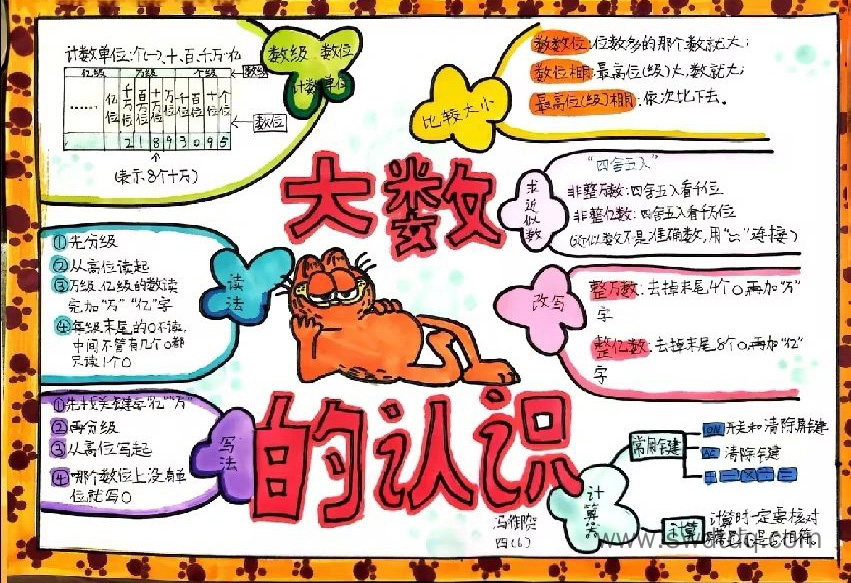 计数单位:个(一)、十、百、千、万…亿
亿级 万级 个级
数级
…… 亿位 千万位 百万位 十万位 万位 千位 百位 十位 个位
数位
2 1 8 9 3 0 9 5
(表示8个十万)
数级 数位
计数单位
比较大小
位数多的那个数就大;
最高位(级)大,数就大;
最高位(级)相同:依次比下去。
大数
的认识
求近似数
"四舍五入"
非整万数:四舍五入看千位
非整亿数:四舍五入看千万位
(近似数不是准确数,用"≈"连接)
读法
①先分级
②从高位读起
③万级、亿级的数读
完加"万""亿"字
④每级末尾的0不读,
中间不管有几个0都
只读1个0
改写
整万数:去掉末尾4个0,再加"万"
字
整亿数:去掉末尾8个0,再加"亿"
字
写法
①先找关键字"亿""万"
②再分级
③从高位写起
④哪个数位上没单
位就写0
计算器
常用键
ON 开关和清除屏键
AC 清除键
计算
计算时一定要核对
四(6)